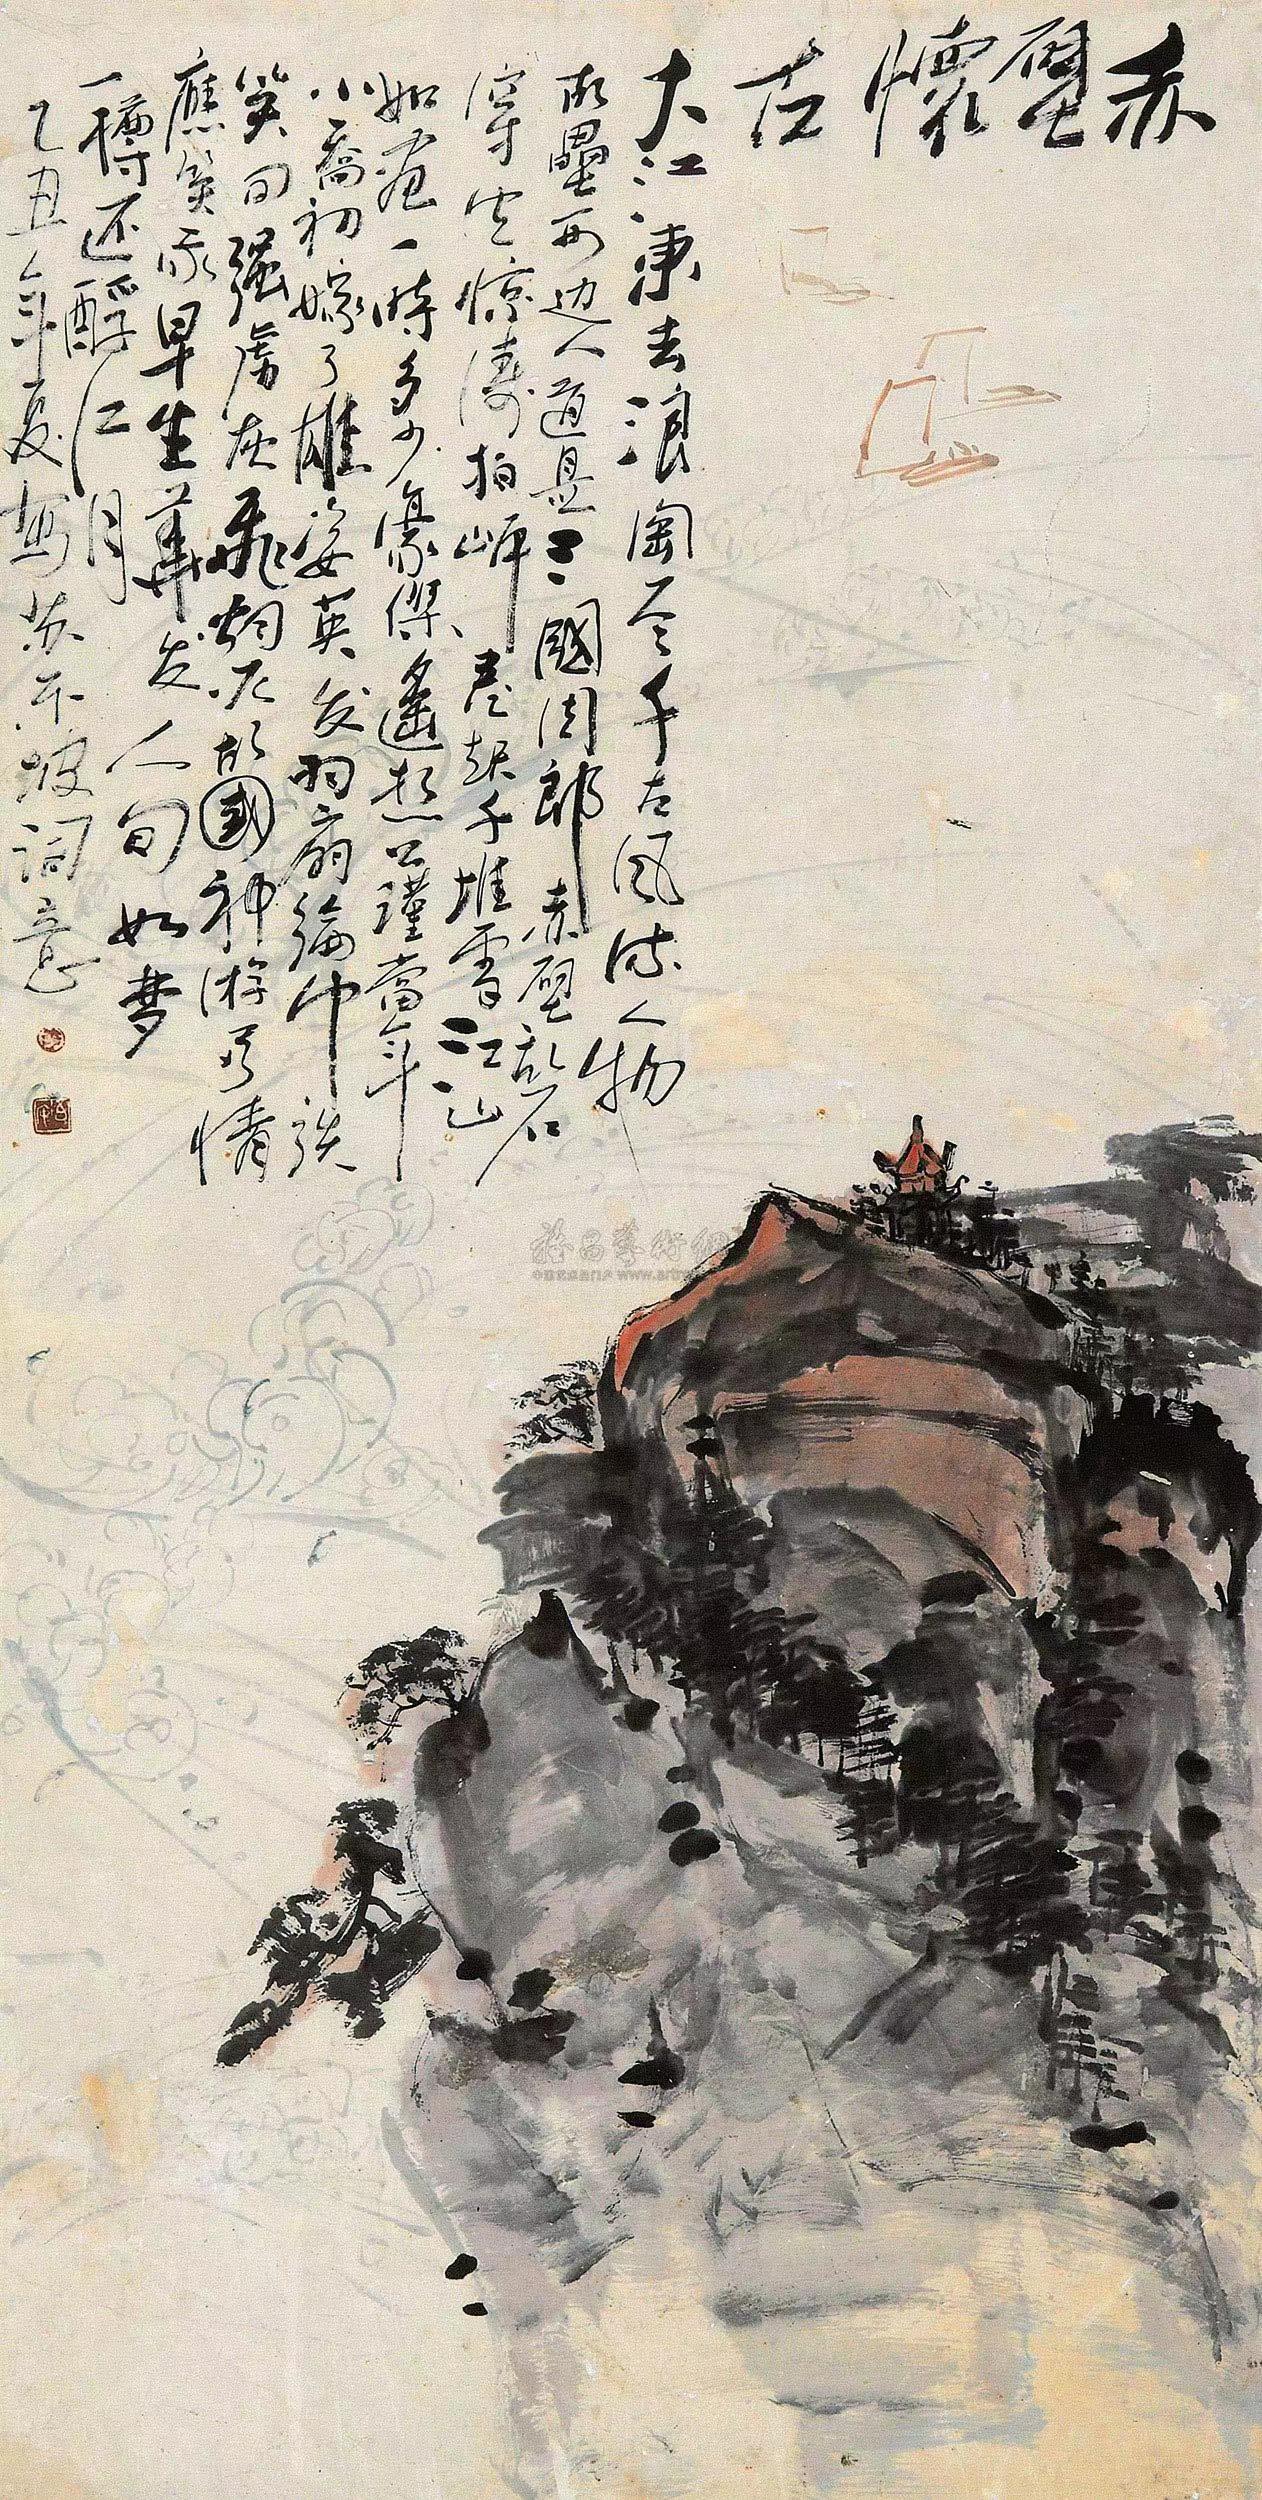 赤壁懷古
大江東去浪淘尽千古风流人物
故壘西边人道是三國周郎赤壁乱石
穿空惊涛拍岸卷起千堆雪江山
如画一時多少豪傑遙想公謹當年
小喬初嫁了雄姿英发羽扇綸巾談
笑间强虏灰飛烟灭故國神游多情
應笑我早生華发人间如梦
一樽还酹江月
乙丑年夏写苏东坡词意
雅昌藝術網